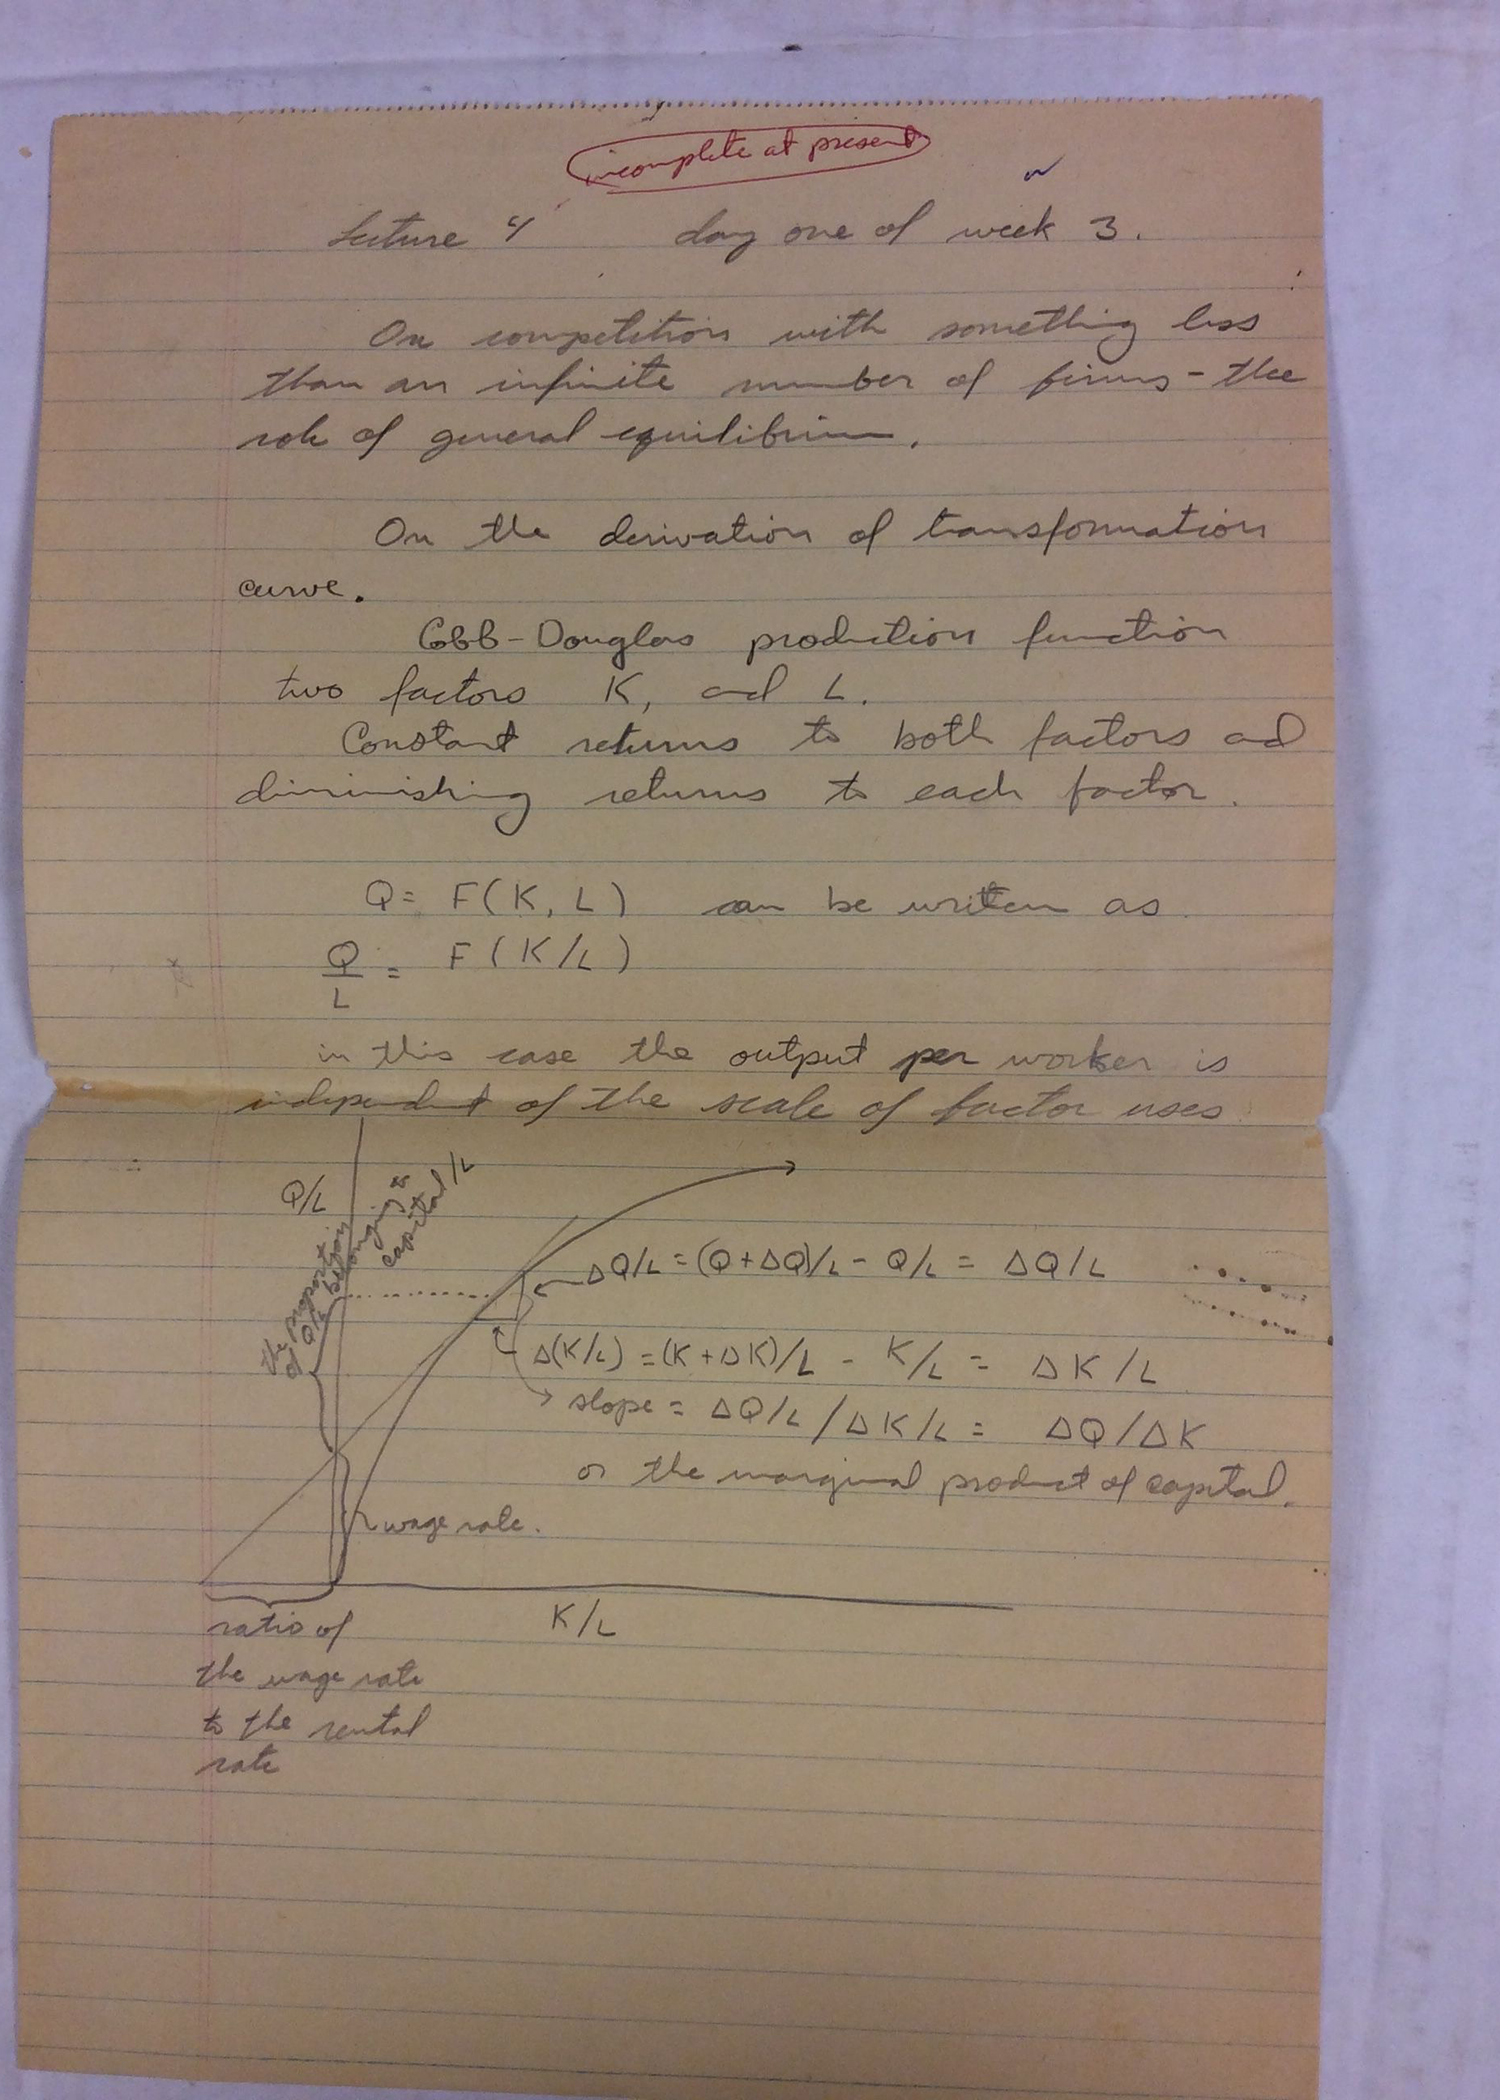 incomplete at present
Lecture 4 day one of week 3.
On competition with something less
than an infinite number of firms - the
role of general equilibrium.
On the derivation of transformation
curve.
Cobb-Douglas production function
two factors K, and L.
Constant returns to both factors and
diminishing returns to each factor.
Q = F(K, L) can be written as
Q/L = F(K/L)
in this case the output per worker is
independent of the scale of factor uses
Q/L
the proportion
of Q/L belonging to
capital/L
ΔQ/L = (Q+ΔQ)/L - Q/L = ΔQ/L
Δ(K/L) = (K+ΔK)/L - K/L = ΔK/L
slope = ΔQ/L / ΔK/L = ΔQ/ΔK
or the marginal product of capital.
wage rate.
K/L
ratio of
the wage rate
to the rental
rate